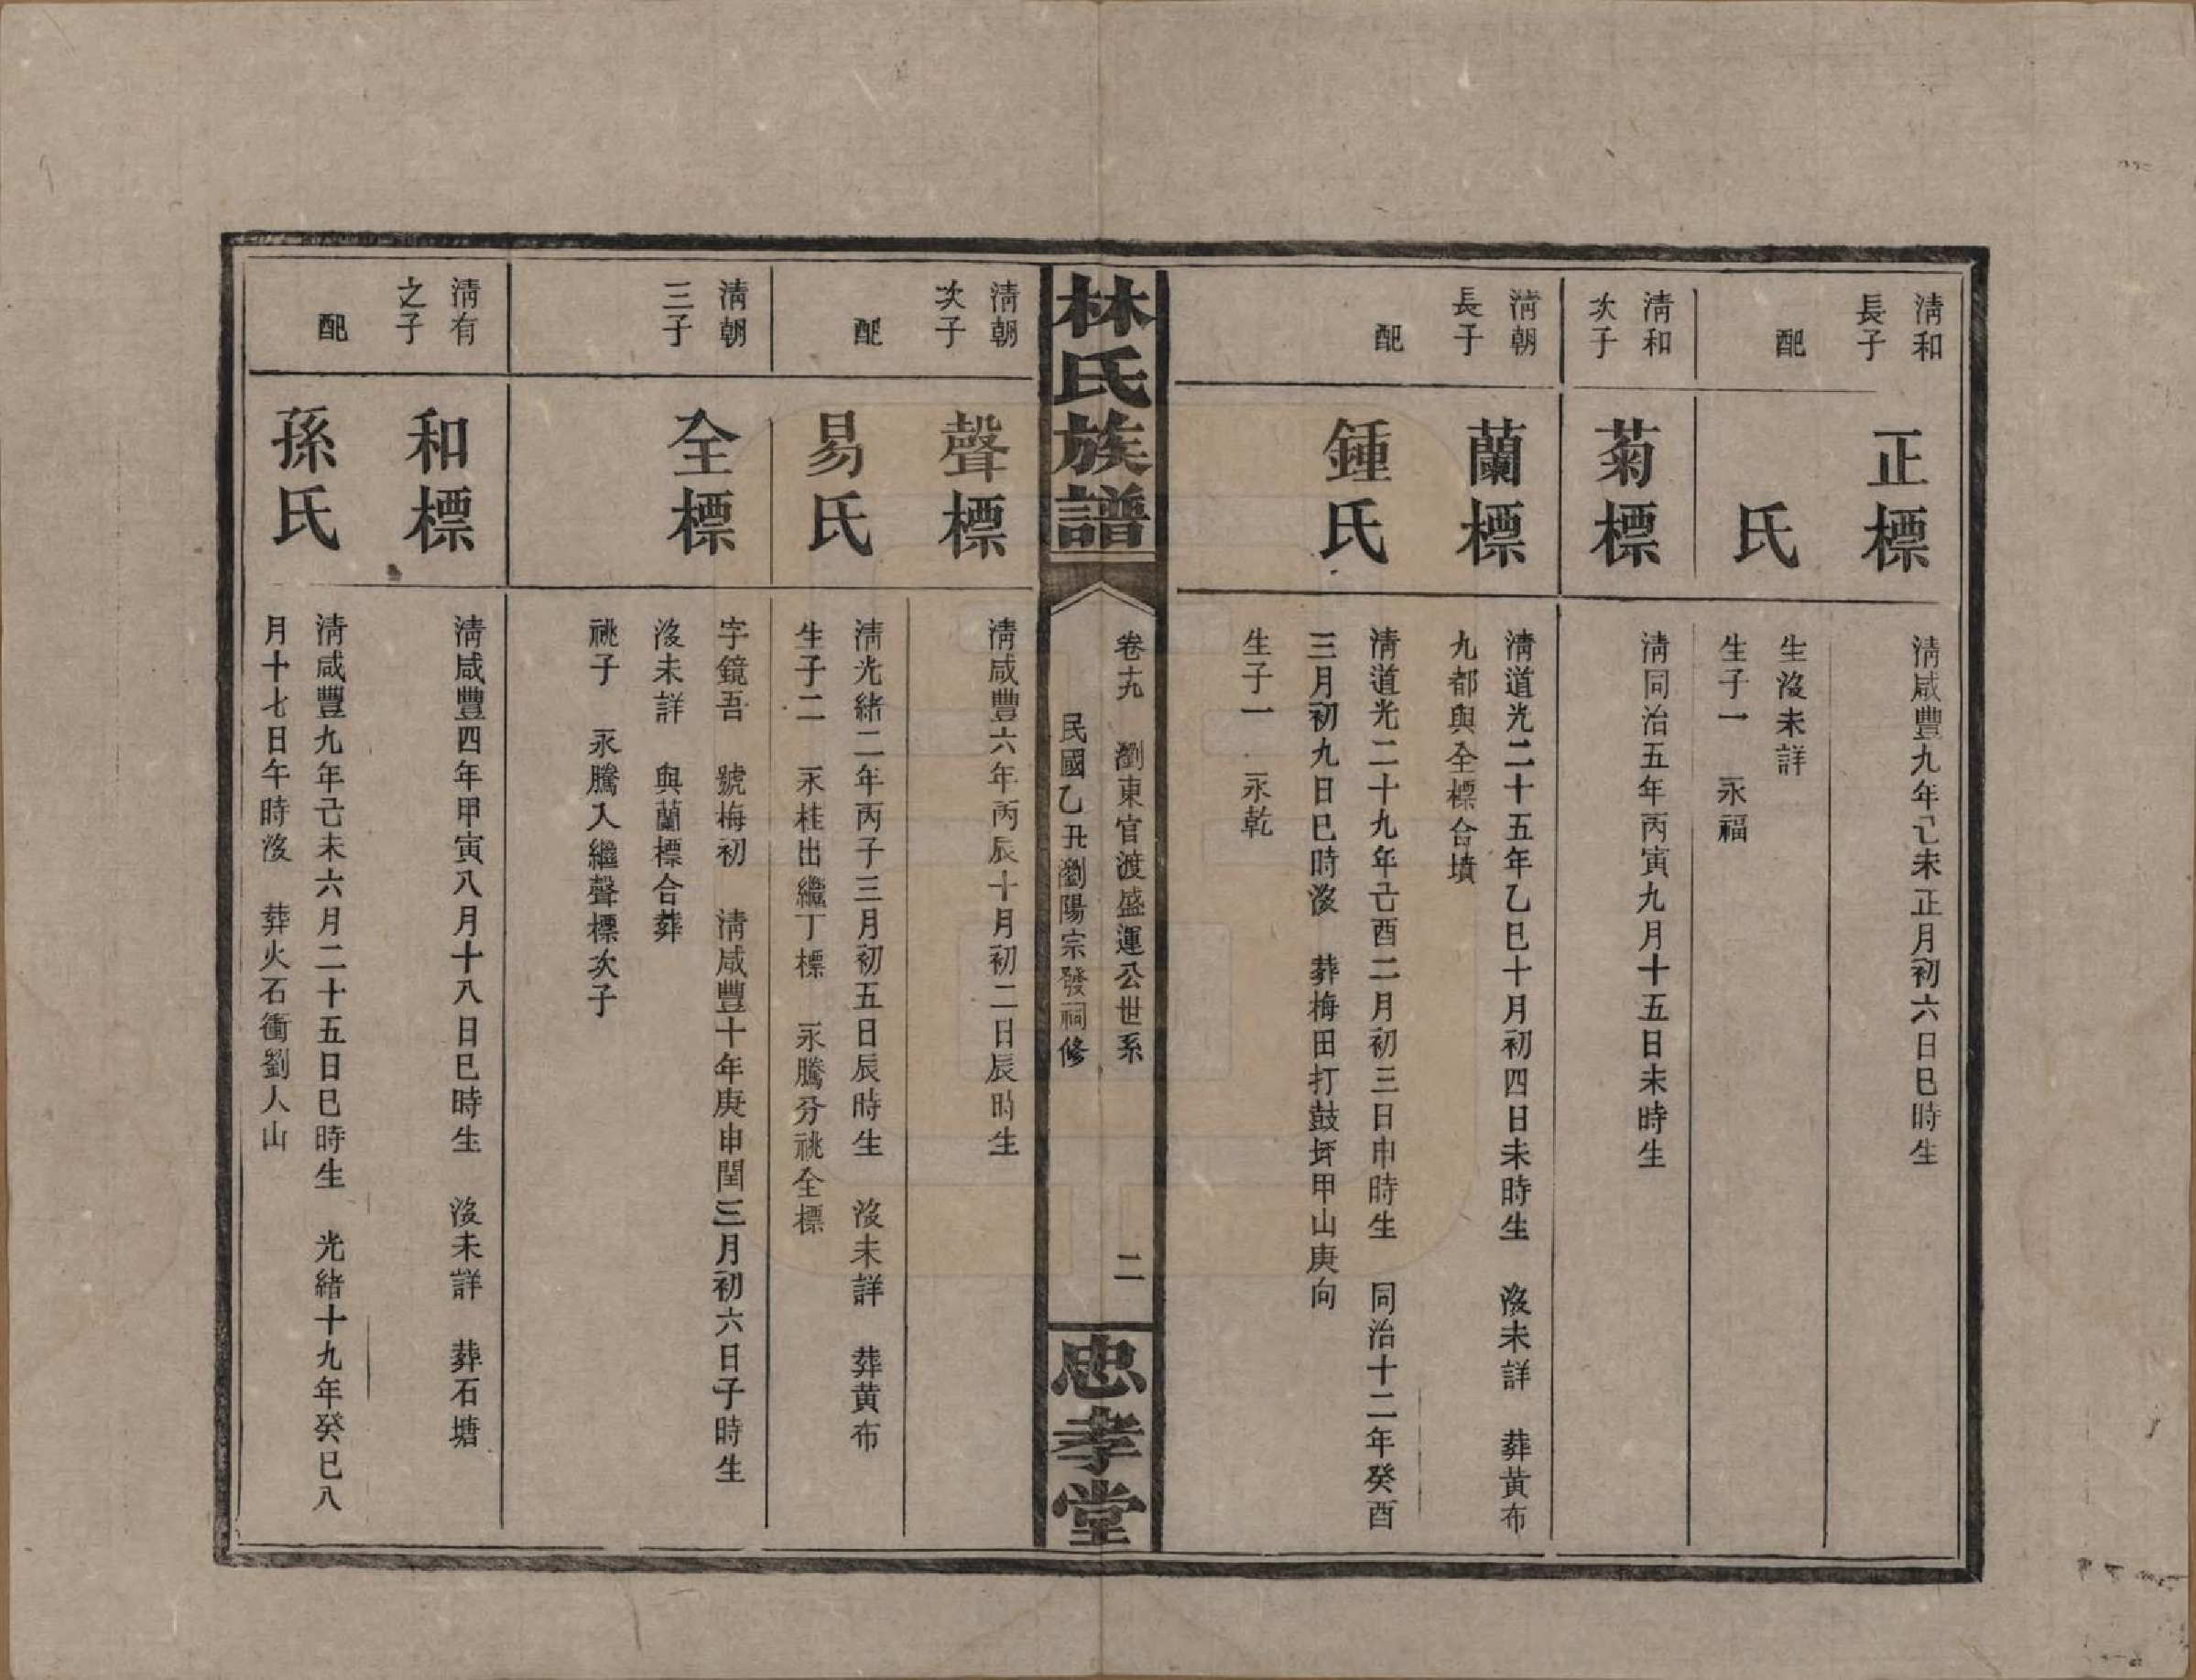 清和
長子
正標
清咸豐九年己未正月初六日巳時生
配
氏
生沒未詳
生子一　永福
清和
次子
菊標
清同治五年丙寅九月十五日未時生
清朝
長子
蘭標
清道光二十五年乙巳十月初四日未時生　沒未詳　葬黄布
九都與全標合墳
配
鍾氏
清道光二十九年己酉二月初三日申時生　同治十二年癸酉
三月初九日巳時沒　葬梅田打鼓坏甲山庚向
生子一　永乾
林氏族譜
卷十九　瀏東官渡盛運公世系　二
民國乙丑瀏陽宗發祠修
忠孝堂
清朝
次子
聲標
清咸豐六年丙辰十月初二日辰時生
配
易氏
清光緒二年丙子三月初五日辰時生　沒未詳　葬黄布
生子二　永桂出繼丁標　永騰分祧全標
清朝
三子
全標
字鏡吾　號梅初　清咸豐十年庚申閏三月初六日子時生
沒未詳　與蘭標合葬
祧子　永騰入繼聲標次子
清有
之子
和標
清咸豐四年甲寅八月十八日巳時生　沒未詳　葬石塘
配
孫氏
清咸豐九年己未六月二十五日巳時生　光緒十九年癸巳八
月十七日午時沒　葬火石衝劉人山